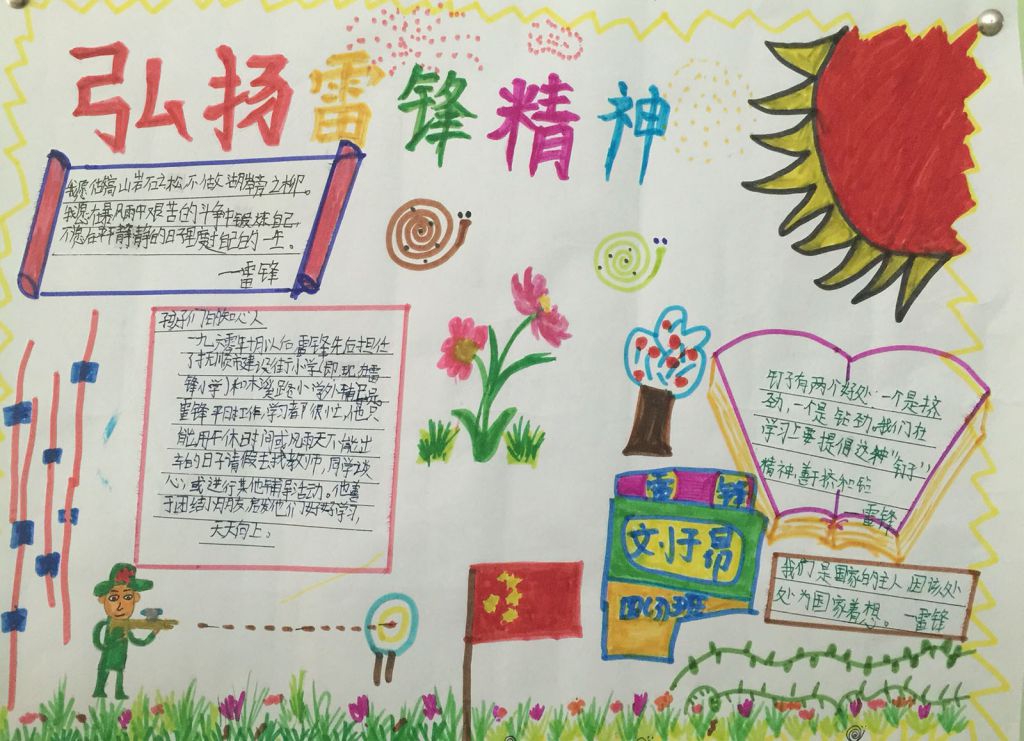 弘扬雷锋精神
我愿做高山岩石之松,不做湖岸之柳。
我愿在暴风雨中艰苦的斗争中锻炼自己,
不愿在平平静静的日子里度过自己的一生。
—雷锋
孩子们的知心人
一九六零年十月以后雷锋先后担任
了抚顺市建设街小学(即现在雷
锋小学)和本溪路小学外辅导员。
雷锋平日工作,学习都很忙,他只
能用午休日时间或风雨天不能出
车的日子请假去找教师,同学谈
心,或进行某他辅导活动。他善
于团结小朋友,启发他们好好学习,
天天向上。
钉子有两个好处:一个是挤
劲,一个是钻劲,我们在
学习上要提倡这种"钉子"
精神,善于挤和钻
—雷锋
雷锋
文小于昂
四(3)班
我们是国家的主人,因该处
处为国家着想。—雷锋